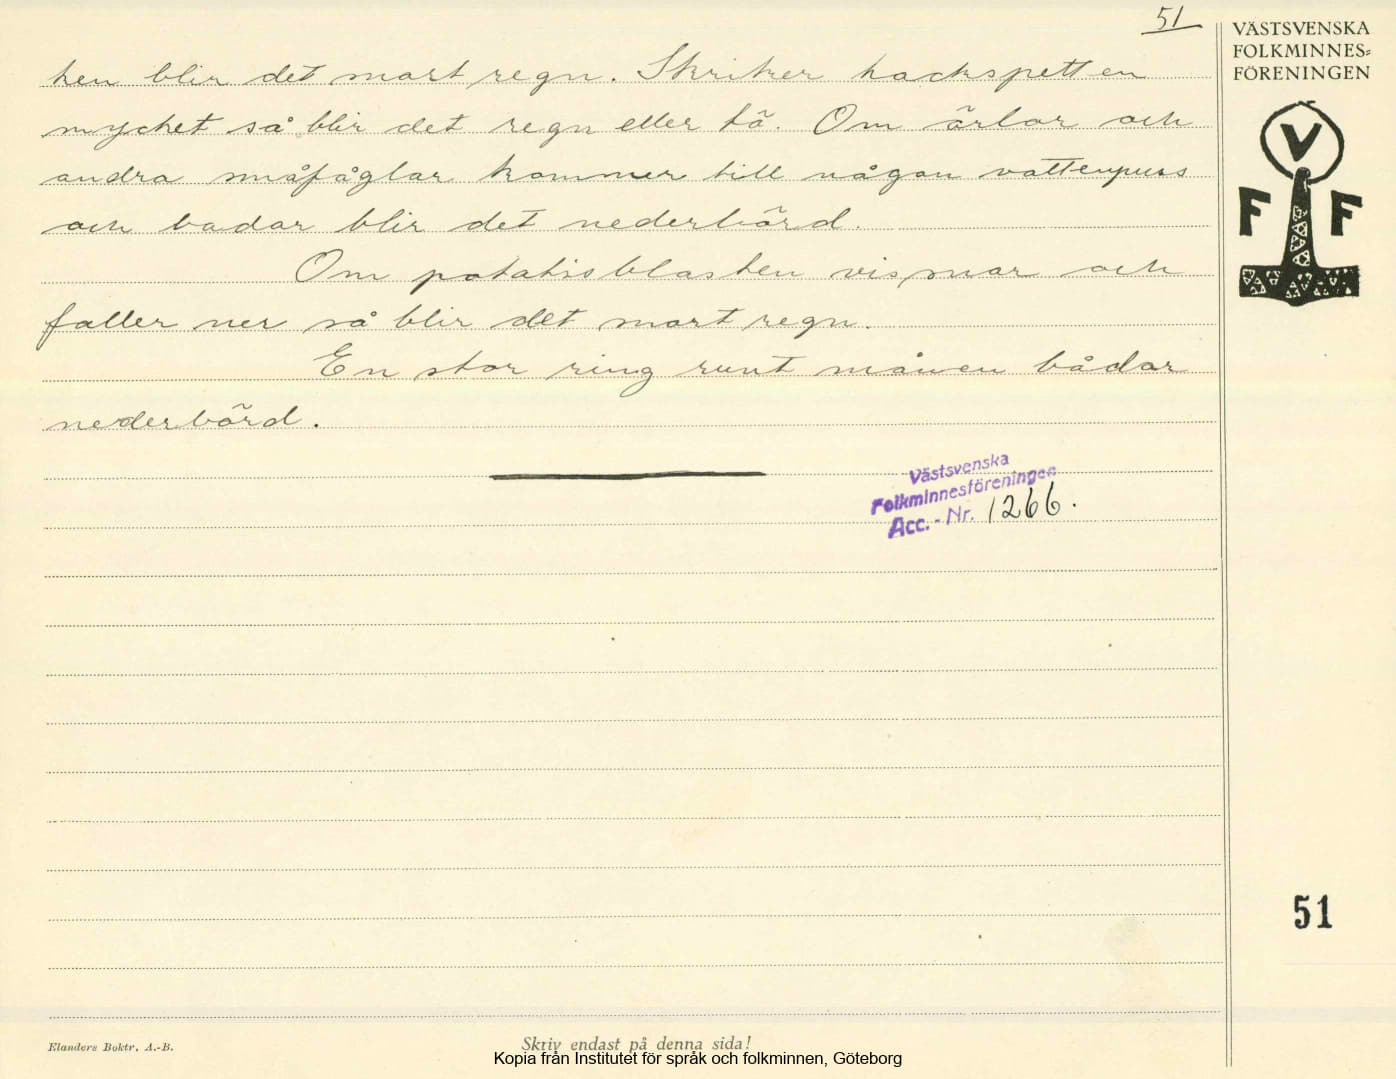 51
ken blir det snart regn. Skriker hackspetten
mycket så blir det regn eller tö. Om ärlor och
andra småfåglar kommer till någon vattenpuss
och badar blir det nederbörd.
Om potatisblasten vissnar och
faller ner så blir det snart regn.
En stor ring runt månen bådar
nederbörd.
Västsvenska
Folkminnesföreningen
Acc. - Nr. 1266.
VÄSTSVENSKA
FOLKMINNES=
FÖRENINGEN
V
F F
51
Elanders Boktr. A.-B.
Skriv endast på denna sida!
Kopia från Institutet för språk och folkminnen, Göteborg